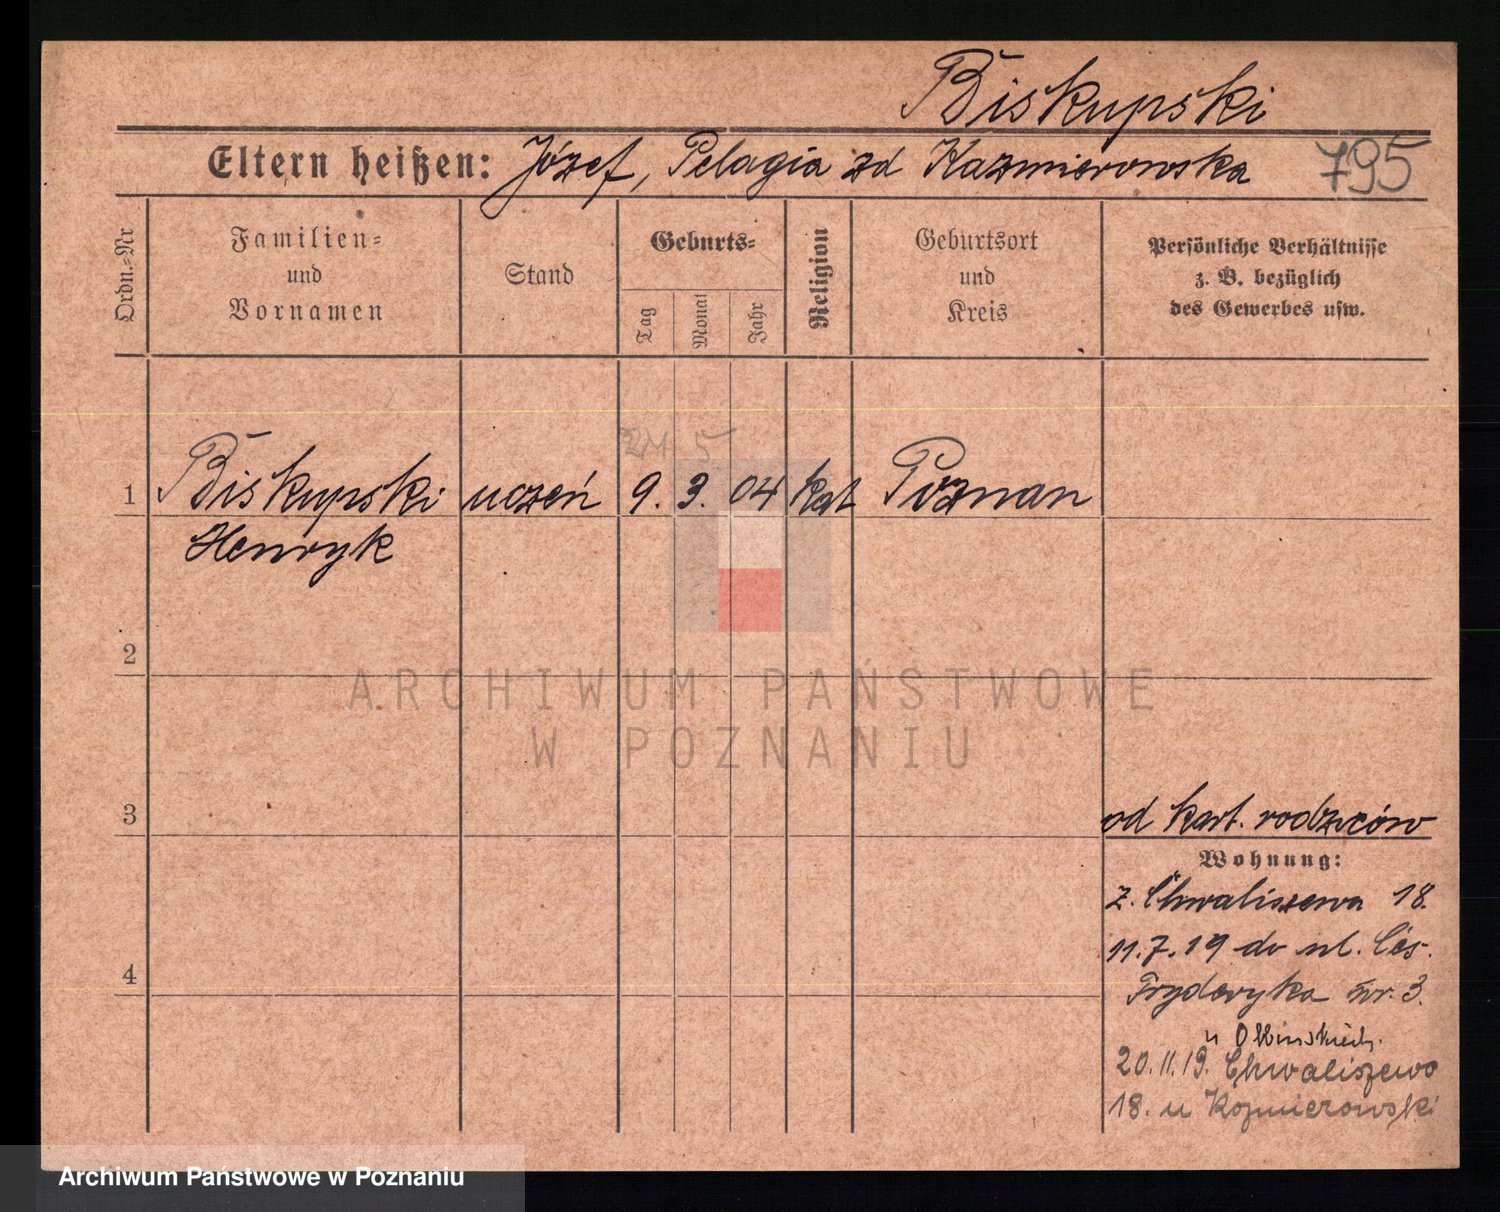 Biskupski
Eltern heißen: Józef, Pelagia zd Kazmierowska 795
Ordn.=Nr
Familien=
und
Vornamen
Stand
Geburts=
Tag
Monat
Jahr
Religion
Geburtsort
und
Kreis
Persönliche Verhältnisse
z. B. bezüglich
des Gewerbes usw.
1 Biskupski uczeń 9. 3. 04 kat Poznan
Henryk
2
3
4
od kart. rodziców
Wohnung:
z. Chwaliszewa 18.
11.7.19 do ul. Ces.
Fryderyka nr. 3.
u
20.11.19. Chwaliszewo
18. u Kozmierowski
ARCHIWUM PAŃSTWOWE
W POZNANIU
Archiwum Państwowe w Poznaniu